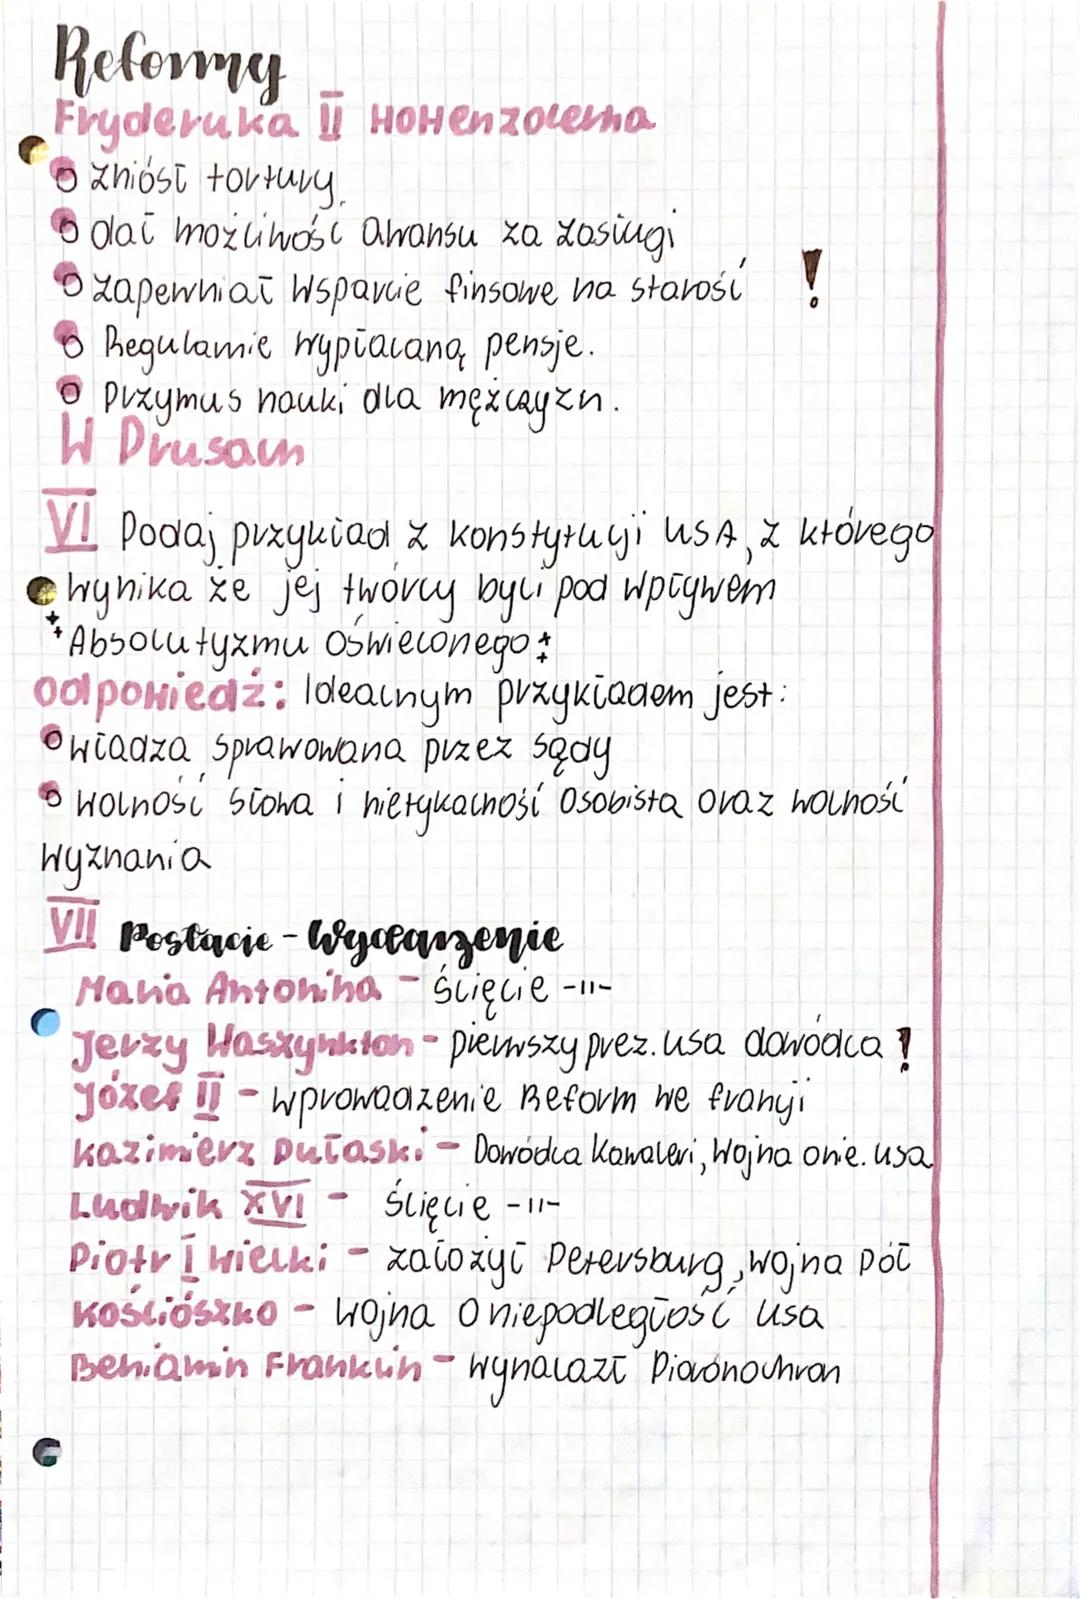 Reformy
Fryderuka II Hohenzolerna
zniósł tortury.
dał możliwość awansu za zasługi
zapewniał wsparcie finsowe na starość !
Regularnie wypłacaną pensje.
Przymus nauki dla mężczyzn.
W Prusach
VI Podaj przykład z konstytucji USA, z którego
wynika że jej twórcy byli pod wpływem
Absolutyzmu Oświeconego:
Odpowiedź: Idealnym przykładem jest:
władza sprawowana przez sądy
wolność słowa i nietykalność osobista oraz wolność
wyznania
VII Postacie - Wydarzenie
Maria Antonina - ścięcie -11-
Jerzy Waszynkton - pierwszy prez. usa dowódca !
Józef II - wprowadzenie Reform we francji
Kazimierz Pułaski - Dowódca Kawaleri, Wojna o nie. usa
Ludwik XVI - ścięcie -11-
Piotr I wielki - założył Petersburg, wojna pół
Kościószko - Wojna o niepodległość usa
Beniamin Franklin - wynalazł Piorónochron